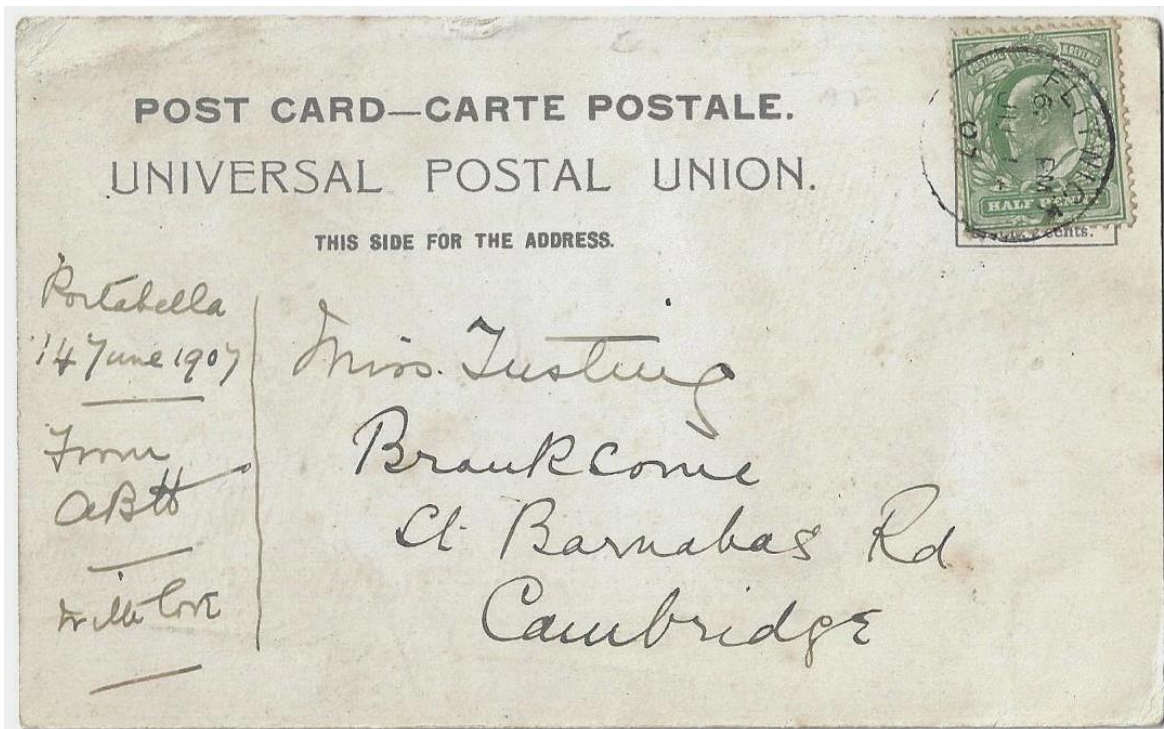 POST CARD—CARTE POSTALE.
UNIVERSAL POSTAL UNION.
THIS SIDE FOR THE ADDRESS.
POSTAGE & REVENUE
HALF PENNY
FLITWICK
6 PM
JU 
07
cents.
Portabella
14 June 1907
From
ABH
with love
Miss. Tusting
Branksome
St Barnabas Rd
Cambridge